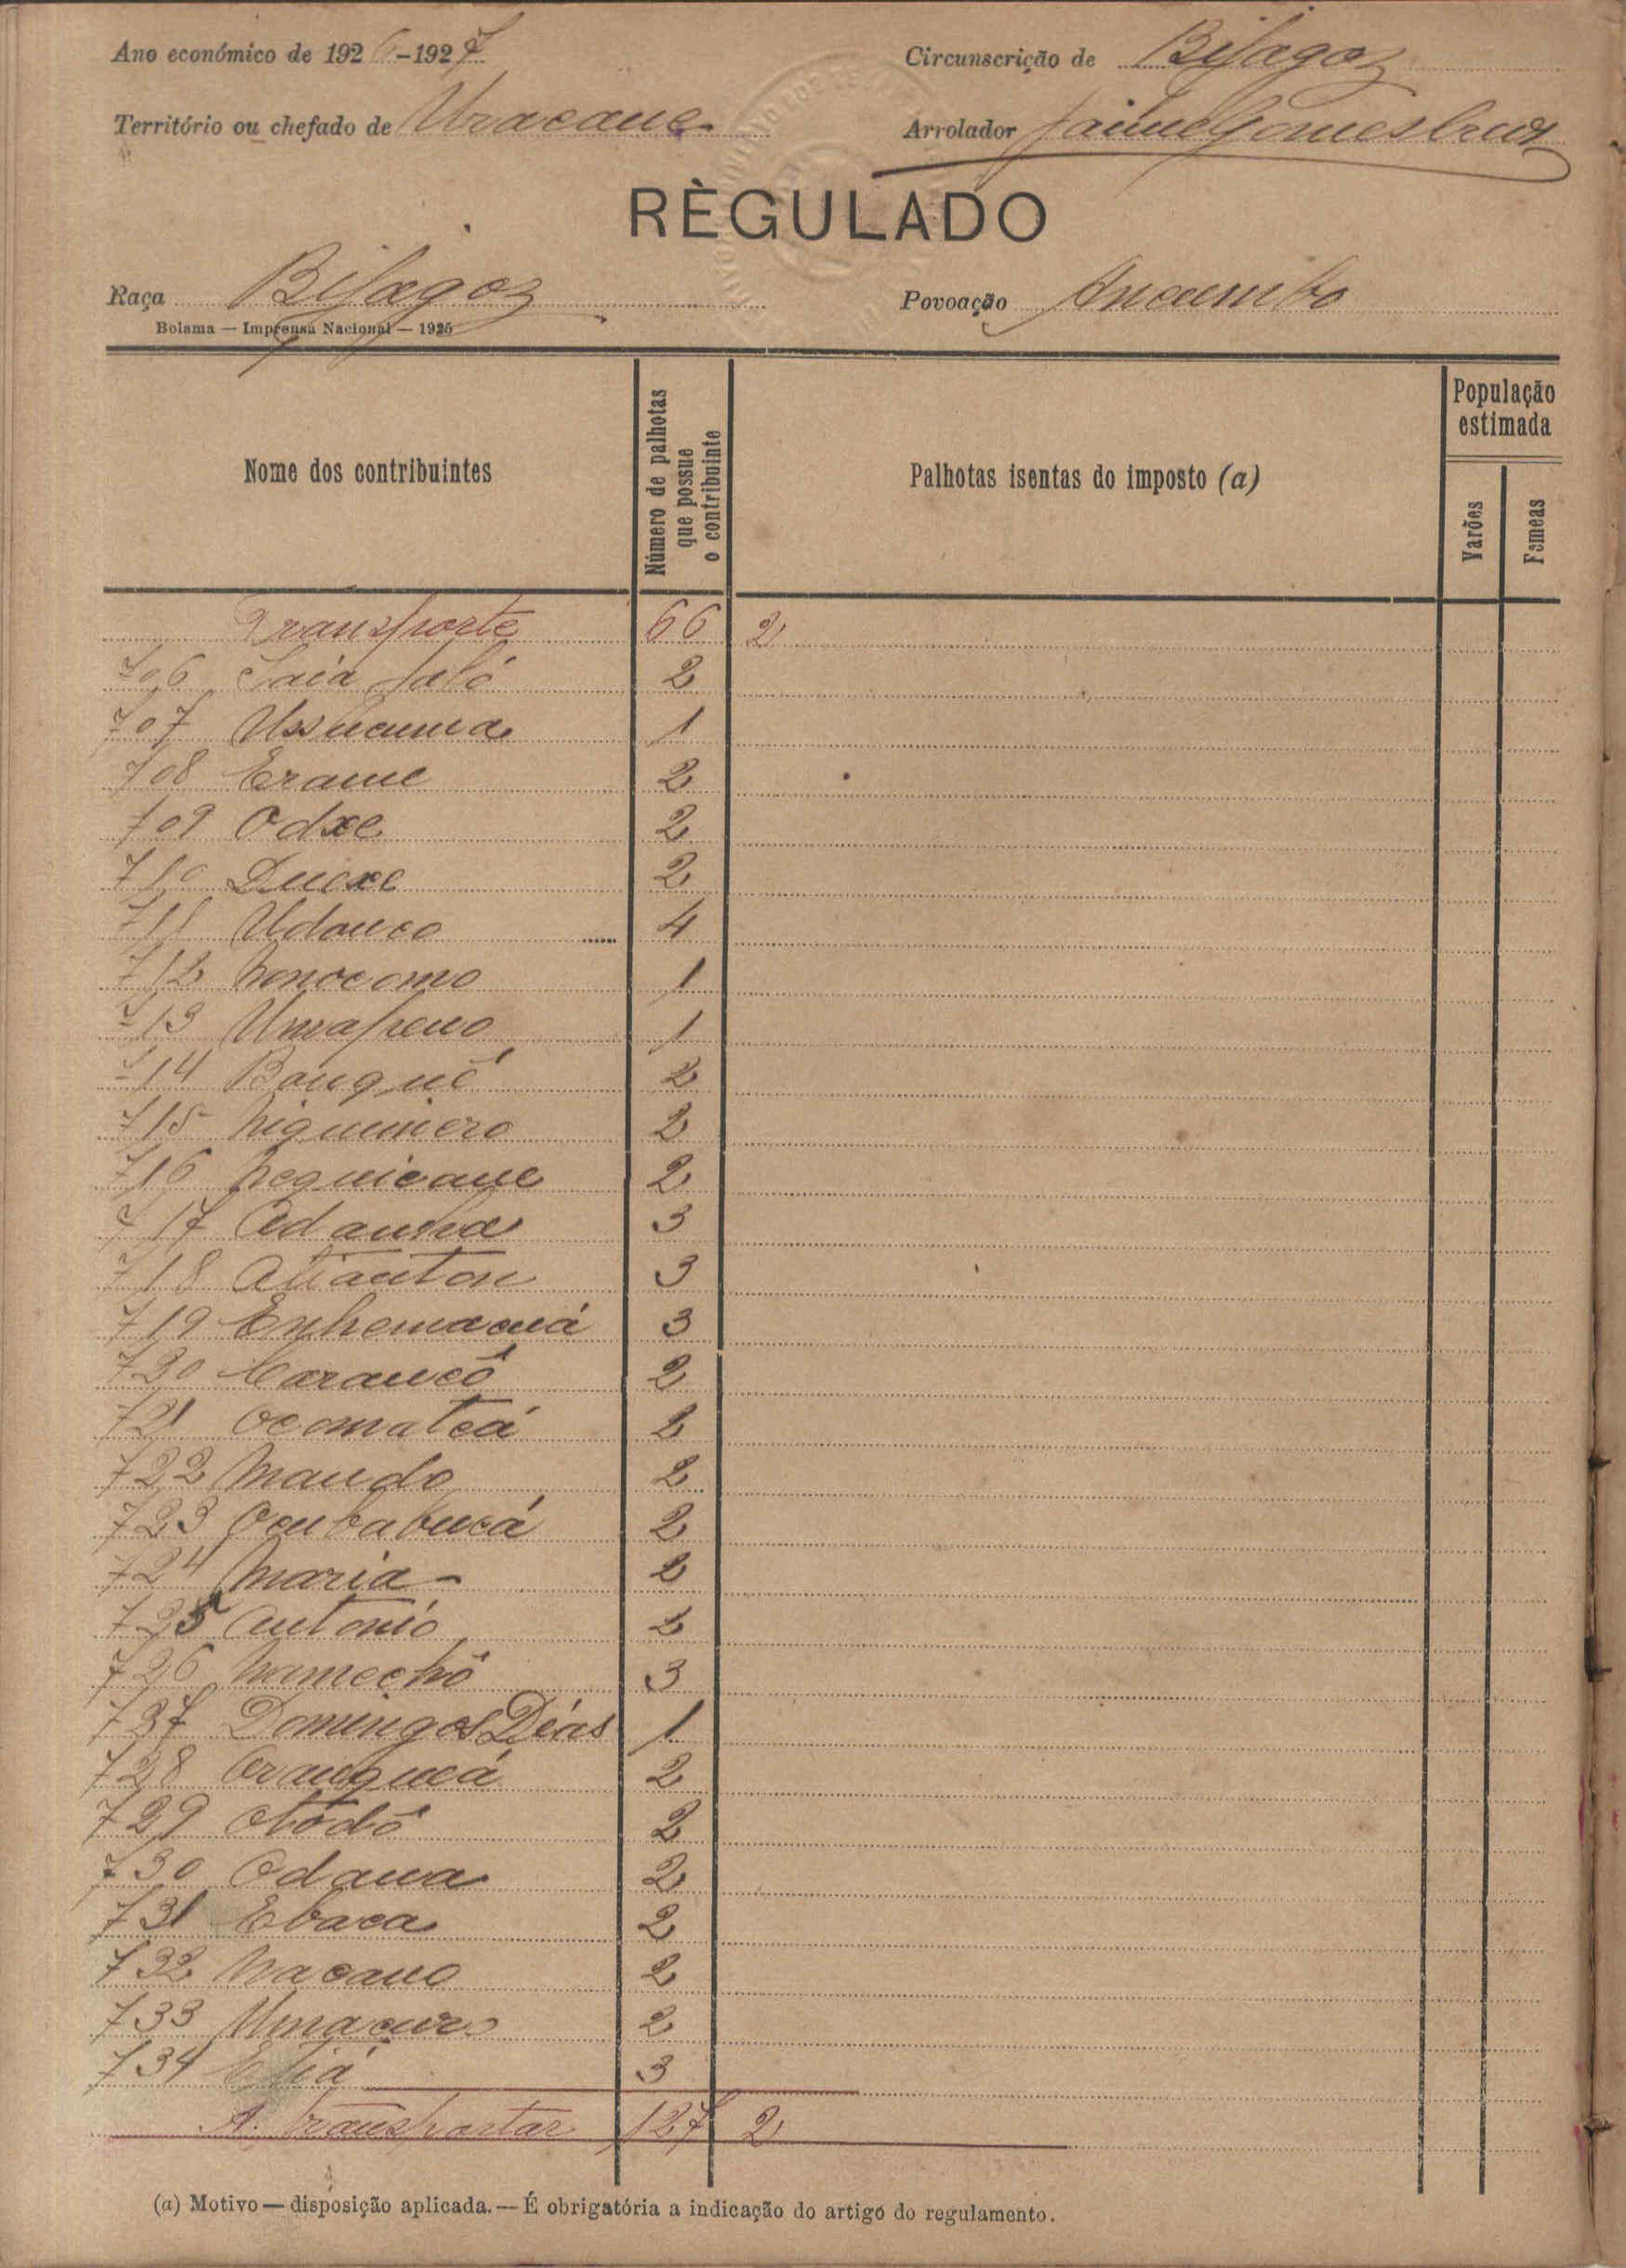 Ano económico de 1926-1927
Circunscrição de Bijagoz
Território ou chefado de Uracane
Arrolador Jaime Gomes
RÈGULADO
Raça Bijagoz
Povoação Ancumbo
Bolama — Imprensa Nacional — 1925
Nome dos contribuintes
Número de palhotas que possue o contribuinte
Palhotas isentas do imposto (a)
População estimada
Varões
Femeas
Transporte 66 2
706 Saia 2
707 Ussucuma 1
708 Erame 2
709 Odxe 2
710 Duexe 2
711 Udouco 4
712 Nonocomo 1
713 Umapeno 1
714 Bouquê 2
715 Niquiniero 2
716 Nequicane 2
717 3
718 Atianton 3
719 Enhemacuá 3
720 Carancô 2
721 Ocomatcá 2
722 Mando 2
723 Ocubabucá 2
724 Maria 2
725 Antonio 2
726 Namechô 3
727 Domingos Dias 1
728 Orangucá 2
729 Otôdô 2
730 Odana 2
731 Ebaca 2
732 Nacano 2
733 Umacuro 2
734 Etiá 3
A transportar 127 2
(a) Motivo — disposição aplicada. — É obrigatória a indicação do artigo do regulamento.